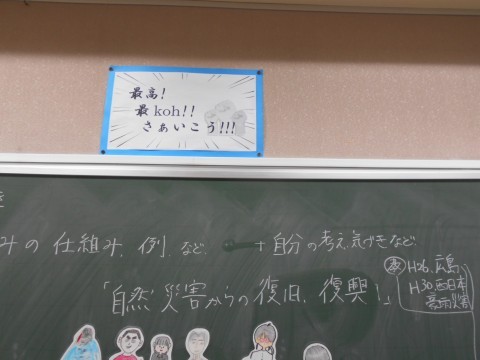 最高!
最koh!!
さぁいこう!!!
みの仕組み、例、など
+自分の考え、気づきなど
「自然災害からの復旧、復興」
H26.広島
H30.西日本
豪雨災害